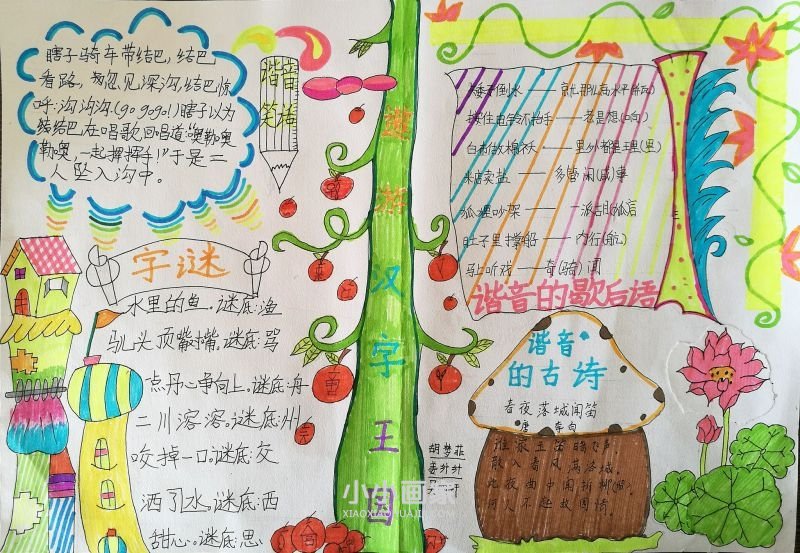 瞎子骑车带结巴,结巴
看路,忽见深沟,结巴惊
呼:沟沟沟(go gogo!)瞎子以为
结巴在唱歌,回唱道:"奥勒奥
勒奥,一起挥挥手!"于是二
人坠入沟中。
谐音
笑话
字谜
水里的鱼。谜底:渔
马儿头顶戴嘴。谜底:骂
一点丹心争向上。谜底:舟
二川溶溶。谜底:州
咬掉一口。谜底:交
洒了水。谜底:西
甜心。谜底:思
遨游汉字王国
胡梦菲
姜叶叶
小小画家
XIAOXIAOHUAJIA.COM
矮子倒水
按住电铃不松手——老是想(响)
白布做棉袄——里外都是理(里)
米店卖盐——多管闲(咸)事
狐狸吵架——一派胡(狐)言
肚子里撑船——内行(航)
马上听戏——奇(骑)闻
谐音的歇后语
谐音
的古诗
春夜落城闻笛
唐 李白
谁家玉笛暗飞声
散入春风满洛城。
此夜曲中闻折柳(留)
何人不起故园情。